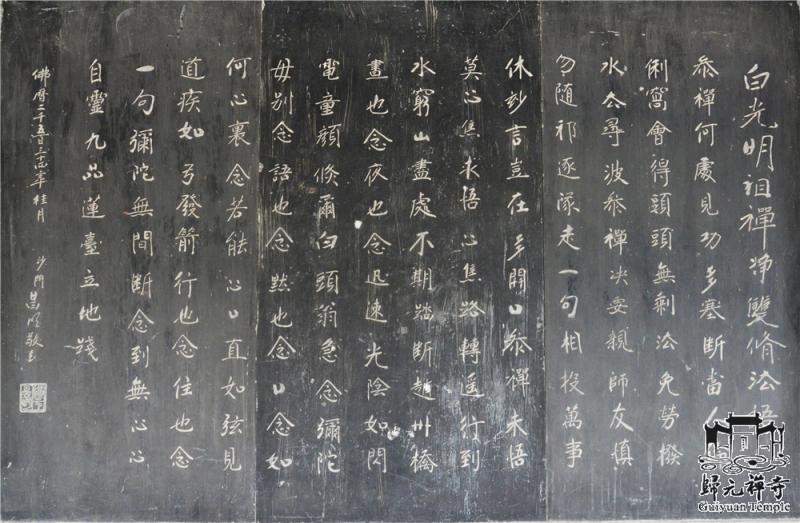 白光明祖禪淨雙脩法語
参禪何處見功多塞断當人
俐窩會得頭頭無剩法免勞撥
水去尋波参禪决要親師友慎
勿随邪逐隊走一句相投萬事
休妙言豈在多開口参禪未悟
莫心焦求悟心焦路轉遥行到
水窮山盡處不期踏断趙州橋
晝也念夜也念迅速光陰如閃
電童顔倏爾白頭翁急念彌陀
毋别念語也念默也念口念如
何心裏念若能心口直如弦見
道疾如弓發箭行也念住也念
一句彌陀無間断念到無心心
自靈九品蓮臺立地踐
佛曆二千五百三十年桂月 沙門昌明敬书
歸元禪寺
Guiyuan Temple